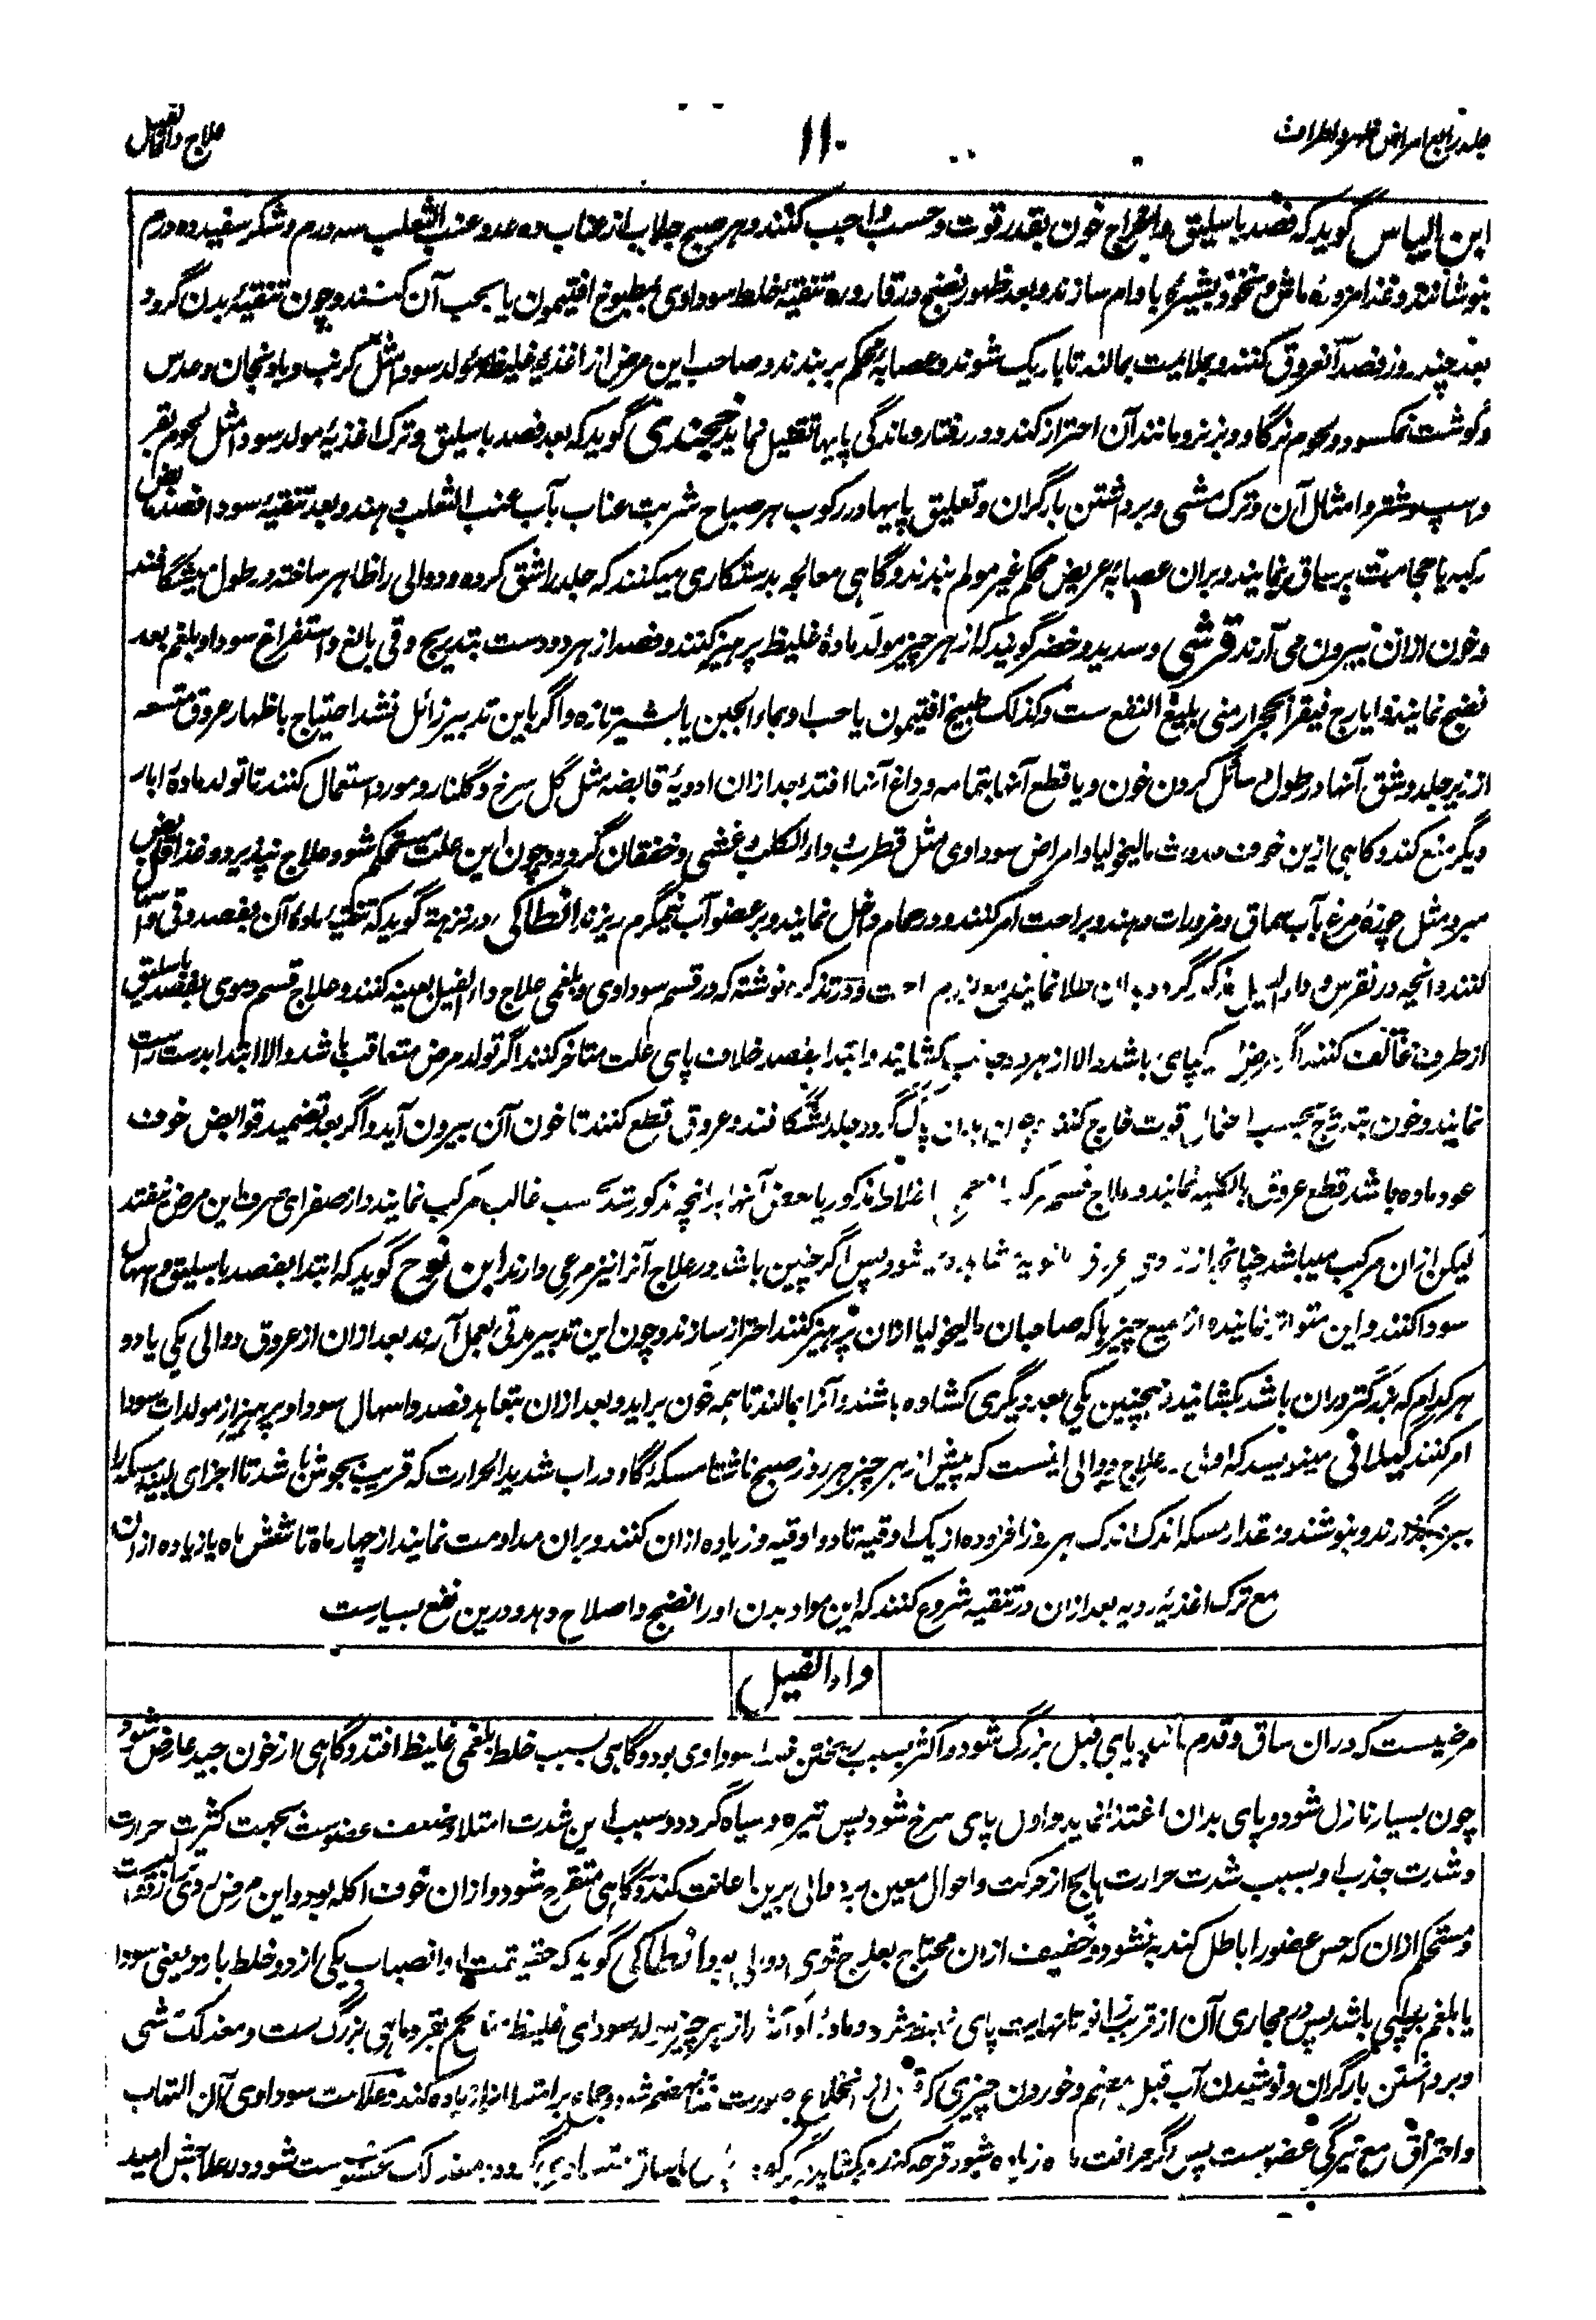 جلد رابع امراض ظهر و اطراف
۱۱۰
علاج داء الفیل
ابن الیاس گوید که فصد باسلیق و اخراج خون بقدر قوت و حسب واجب کنند و هر صبح جلاب از عناب ده عدد و عنب الثعلب سه درم و شکر سفید ده درم
بنوشانند و غذا مزوره ماش و نخود بشیرهٔ بادام سازند و بعد ظهور نضج در قاروره تنقیهٔ خلط سوداوی بمطبوخ افتیمون یا بحب آن کنند و چون تنقیهٔ بدن گردد
بعد چند روز فصد آن عروق کنند و بملایمت بمالند تا باریک شوند و عصابهٔ محکم بر بندند و صاحب این مرض از اغذیهٔ غلیظهٔ مولد سودا مثل کرنب و بادنجان و عدس
و گوشت نمکسود و لحوم نر گاو و بز نر و مانند آن احتراز کند و در رفتار و ماندگی پایها تقلیل نماید خجندی گوید که بعد فصد باسلیق و ترک اغذیهٔ مولد سودا مثل لحوم بقر
و اسپ و شتر و امثال آن و ترک مشی و برداشتن بار گران و تعلیق پایها در رکوب هر صباح شربت عناب بآب عنب الثعلب دهند و بعد تنقیهٔ سودا فصد مابض
رکبه یا حجامت بر ساق نمایند و بران عصابهٔ عریض محکم غیر مولم بندند و گاهی معالجه بدستکاری میکنند که جلد را شق کرده و دوالی را ظاهر ساخته در طول میشگافند
و خون ازان بیرون می آرند قرشی و سدید و خضر گویند که از هر چیز مولد مادهٔ غلیظ پرهیز کنند و فصد از هر دو دست بتدریج و قی بالغ و استفراغ سودا و بلغم بعد
نضج نمایند و ایارج فیقرا بحجر ارمنی بلیغ النفع ست و کذلک طبیخ افتیمون یا حب او بماء الجبن یا بشیر تازه و اگر باین تدبیر زائل نشد احتیاج باظهار عروق متسعه
از زیر جلد و شق آنها در طول و سائل کردن خون و یا قطع آنها بتمامه و داغ آنها افتد بعد ازان ادویهٔ قابضه مثل گل سرخ و گلنار و مورد استعمال کنند تا تولد مادهٔ ابار
دیگر منع کند و گاهی ازین خوف حدوث مالیخولیا و امراض سوداوی مثل قطرب و داء الکلب و غشی و خفقان گردد و چون این علت مستحکم شود و علاج نپذیرد و غذا قابض
مبرد مثل چوزهٔ مرغ بآب سماق و مزورات دهند و براحت امر کنند و در حمام داخل نمایند و بر عضو آب نیمگرم ریزند انطاکی در نزهة گوید که تنقیهٔ مادهٔ آن بفصد و قی و اسهال
کنند و آنچه در نقرس و داء الفیل مذکور گردد بدان طلا نمایند و در تذکره نوشته که در قسم سوداوی و بلغمی علاج داء الفیل بعینه کنند و علاج قسم دموی بفصد باسلیق
از طرف مخالف کنند اگر مرض یکپای باشد والا از هر دو جانب کشایند و ابتدا بفصد خلاف پای علت متاخر کنند اگر تولد مرض متعاقب باشد والا ابتدا بدست راست
نمایند و خون بتدریج بحسب احتمال قوت خارج کنند و چون بدن پاک گردد جلد بشگافند و عروق قطع کنند تا خون آن بیرون آید و اگر بعد تضمید قوابض خوف
عود ماده باشد قطع عروق بالکلیه نمایند و علاج قسم مرکب اخلاط مذکور یا بعض آنها بر آنچه مذکور شد بحسب غالب مرکب نمایند و از صفرای صرف این مرض نیفتد
لیکن ازان مرکب میباشد چنانچه از شود پس اگر چنین باشد در علاج آنرا نیز مرعی دارند ابن نوح گوید که ابتدا بفصد باسلیق و اسهال
سودا کنند و این متواتر نمایند و از جمیع چیزها که صاحبان مالیخولیا ازان پرهیز کنند احتراز سازند و چون این تدبیر مدتی بعمل آرند بعد ازان از عروق دوالی یکی یا دو
هر کدام که بزرگتر دران باشد بکشایند و همچنین یکی بعد دیگری کشاده باشند و آنرا بمالند تا همه خون بر آید و بعد ازان بتعاهد فصد و اسهال سودا و پرهیز از مولدات سودا
امر کنند گیلانی مینویسد که اولی در علاج دوالی اینست که پیش از هر چیز هر روز صبح ناشتا مسکه گاو در آب شدید الحرارت که قریب بجوش باشد تا اجزای لبنیه مسکه را
بگذارند و بنوشند و مقدار مسکه اندک اندک هر روز افزوده از یک اوقیه تا دو اوقیه و زیاده ازان کنند و بران مداومت نمایند از چهار ماه تا شش ماه یا زیاده ازان
مع ترک اغذیهٔ ردیه بعد ازان در تنقیه شروع کنند که این مواد بدن او را نضج و اصلاح دهد و درین نفع بسیارست
داء الفیل
مرضیست که دران ساق و قدم مانند پای فیل بزرگ شود و اکثر بسبب ریختن خلط سوداوی بود و گاهی بسبب خلط بلغمی غلیظ افتد و گاهی از خون جید عارض شود
چون بسیار نازل شود و پای بدان اغتذا نماید و اول پای سرخ شود پس تیره و سیاه گردد و سبب این شدت امتلا و ضعف عضوست بجهت کثرت حرارت
و شدت جذب او بسبب شدت حرارت هایج از حرکت و احوال معین بر دوالی برین اعانت کند و گاهی متقرح شود و ازان خوف اکله بود و این مرض ردی
و مستحکم ازان که حس عضو را باطل کند به نشود و خفیف ازان محتاج بعلاج قوی بود انطاکی گوید که حقیقت او انصباب یکی از دو خلط بارد یعنی سودا
یا بلغم باشد پس ورم مجاری آن از قریب زانو تا نهایت پای و مادهٔ او از هر چیز مولد سودای غلیظ لحم بقر و ماهی بزرگ ست و معذلک مشی
و برداشتن بار گران و نوشیدن آب قبل هضم و خوردن چیزی که انخلاع زیاده کند و علامت سوداوی آن التهاب
و احتراق مع تیرگی عضوست پس اگر حرافت ماده زیاده شود قرحه کند شود در علاجش امید